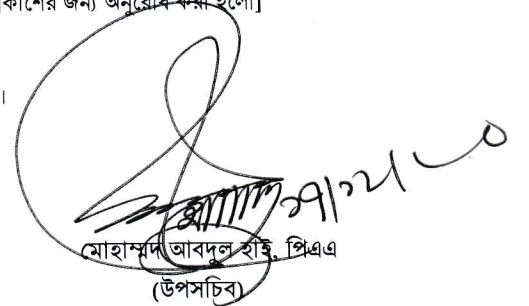 কাশের জন্য অনুরোধ করা হলো]
।
মোহাম্মদ আবদুল হাই, পিএএ
(উপসচিব)